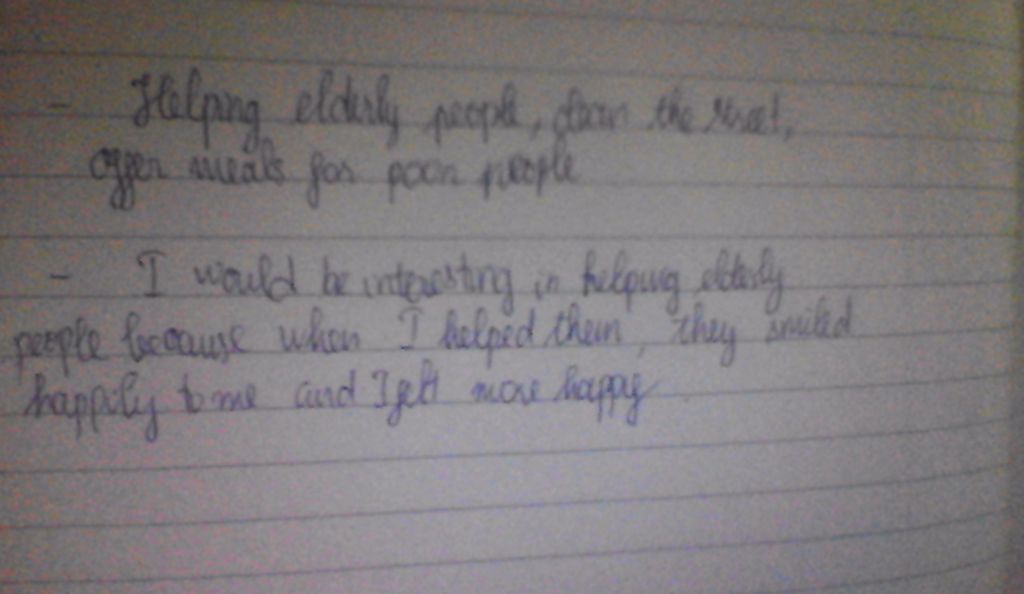 - Helping elderly people, clean the street,
offer meals for poor people
- I would be interesting in helping elderly
people because when I helped them, they smiled
happily to me and I felt more happy